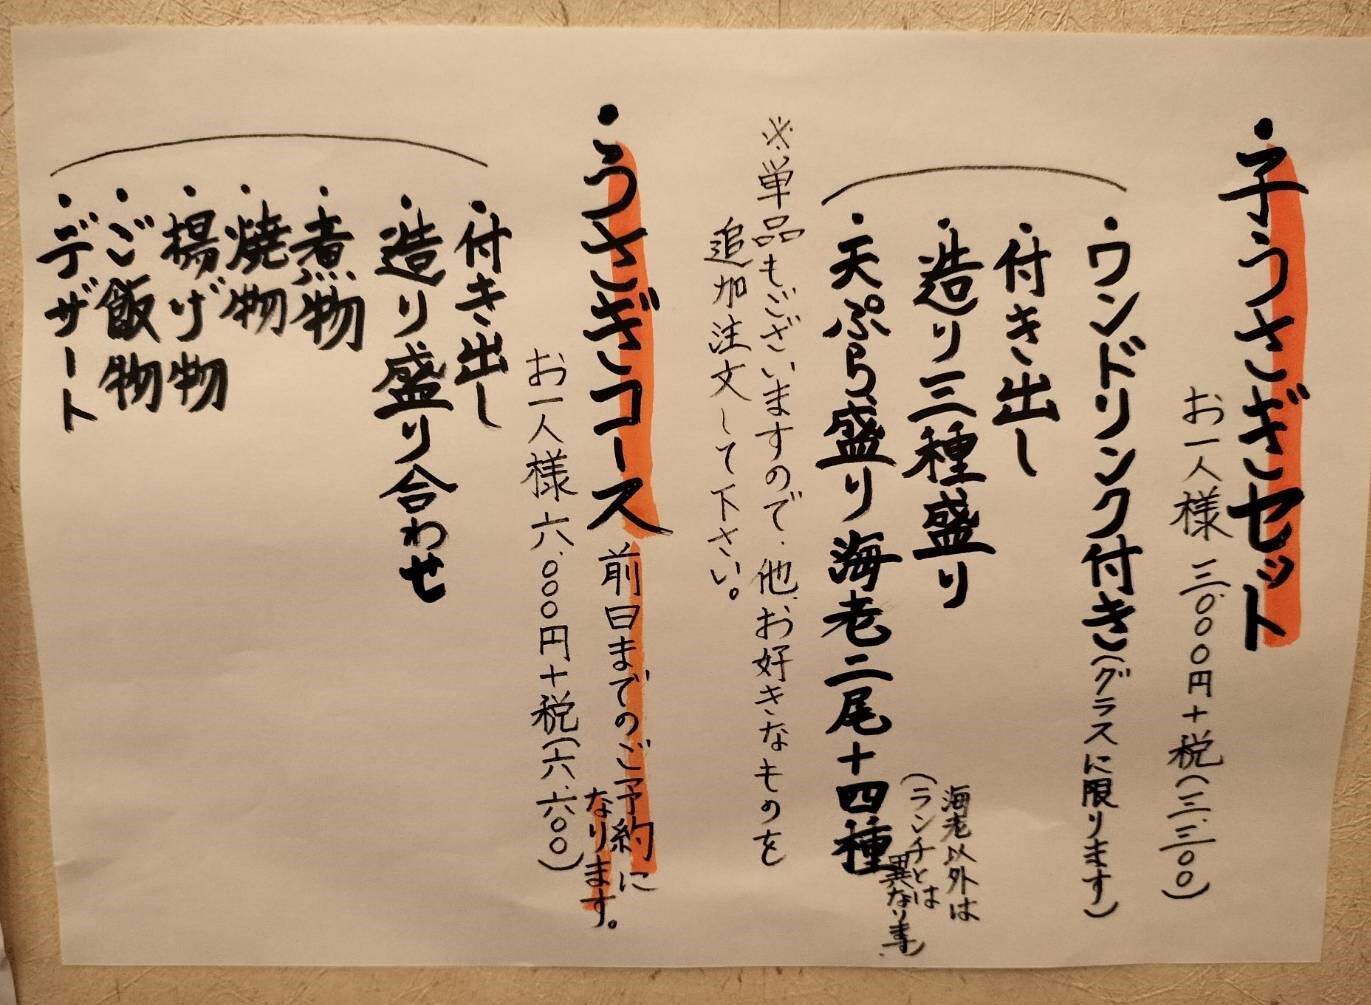 ・子うさぎセット
お一人様 三.〇〇〇円＋税(三.三〇〇)
・ワンドリンク付き(グラスに限ります)
・付き出し
・造り三種盛り
・天ぷら盛り海老二尾＋四種
海老以外は
(ランチとは
異なります)
※単品もございますので、他、お好きなものを
追加注文して下さい。
・うさぎコース 前日までのご予約に
なります。
お一人様 六.〇〇〇円＋税(六.六〇〇)
・付き出し
・造り盛り合わせ
・煮物
・焼物
・揚げ物
・ご飯物
・デザート